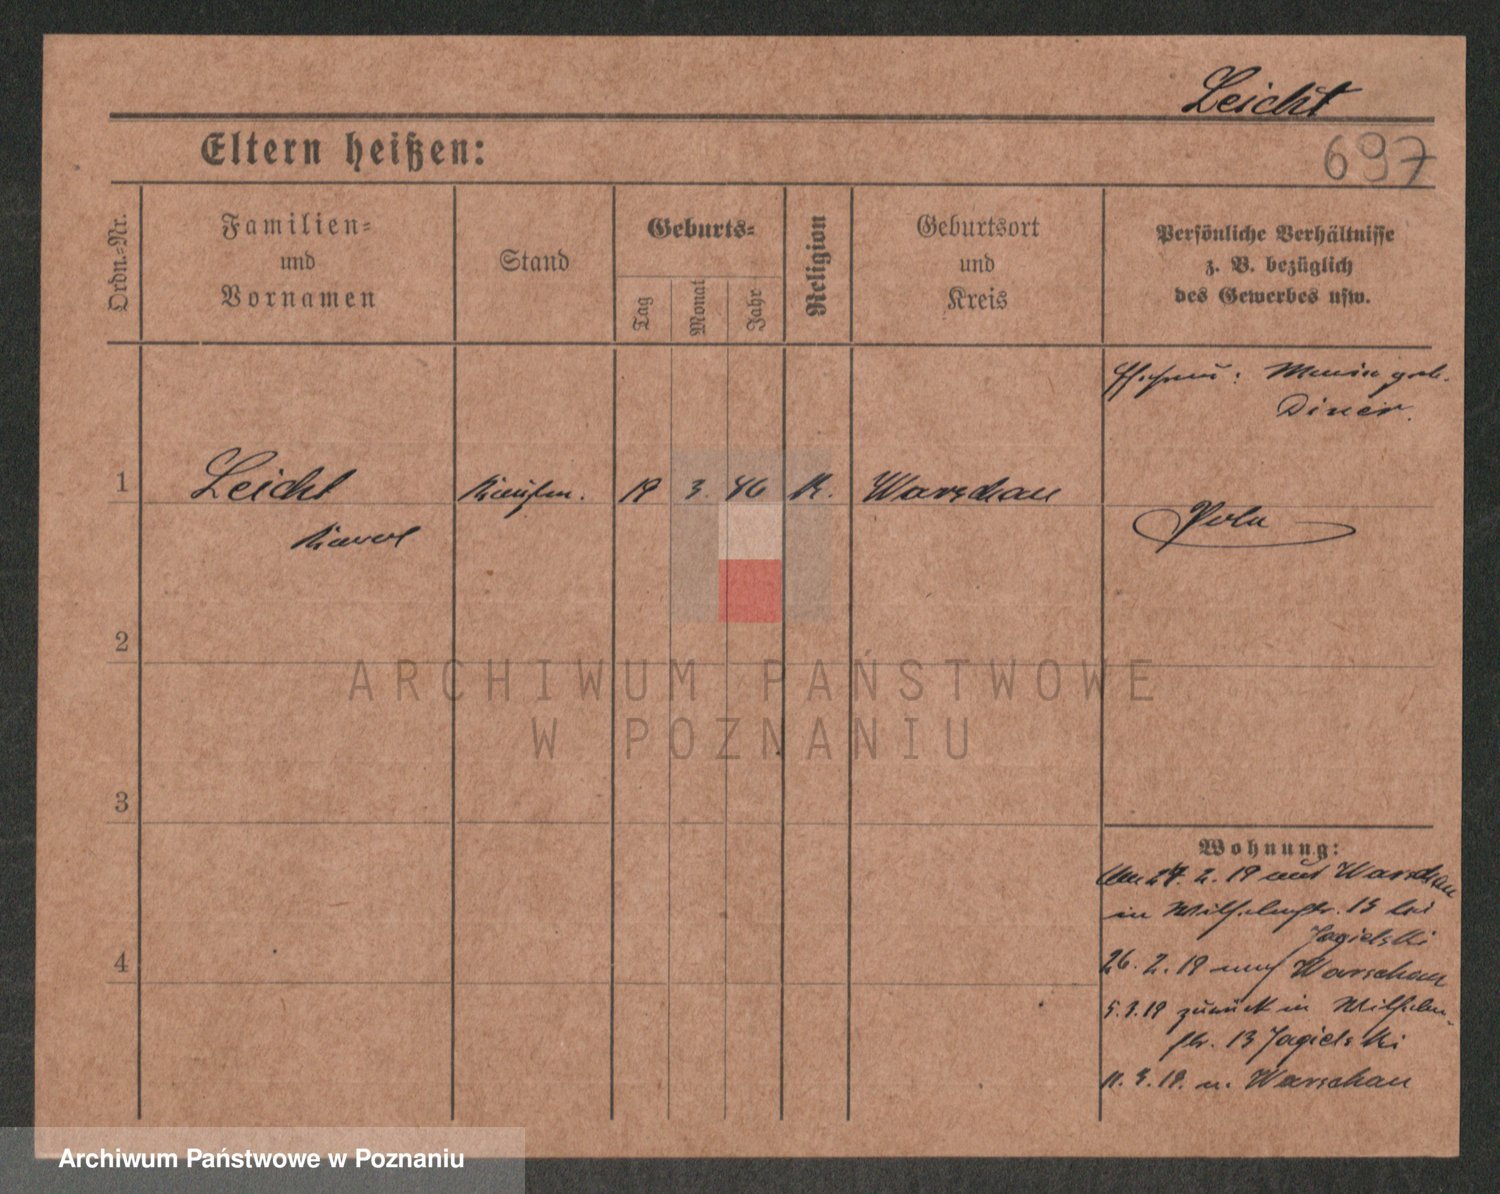 Leicht
Eltern heißen:
697
Ordn.=Nr.
Familien=
und
Vornamen
Stand
Geburts=
Tag
Monat
Jahr
Religion
Geburtsort
und
Kreis
Persönliche Verhältnisse
z. B. bezüglich
des Gewerbes usw.
Ehefrau: geb.
Diner.
1
Leicht
Kaufm.
19
3.
46
K.
Warschau
Karol
Pole
2
3
4
Wohnung:
Am 24. 2. 19 aus Warschau
in Wilhelmstr. 13 bei
Jagielski
26. 2. 19 nach Warschau
5.3.19 zurück in Wilhelm-
str. 13 Jagielski
11. 3. 19. n. Warschau
ARCHIWUM PAŃSTWOWE
W POZNANIU
Archiwum Państwowe w Poznaniu